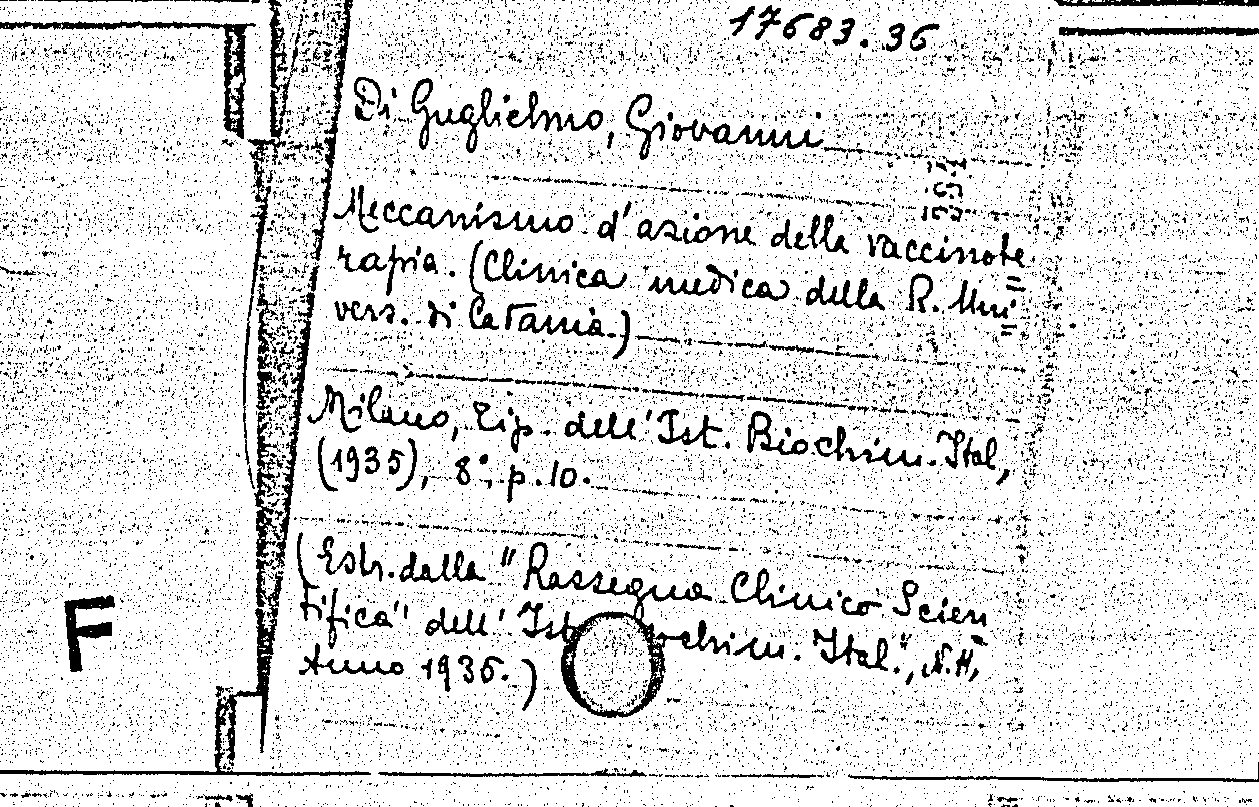 17683.36
Di Guglielmo, Giovanni
Meccanismo d'azione della vaccinote=
rapia. (Clinica medica della R. Uni=
vers. di Catania.)
Milano, Tip. dell'Ist. Biochim. Ital,
(1935), 8°, p. 10.
(Estr. dalla "Rassegna Clinico Scien
tifica" dell' Ist chim. Ital.", N.
Anno 1935.)
F